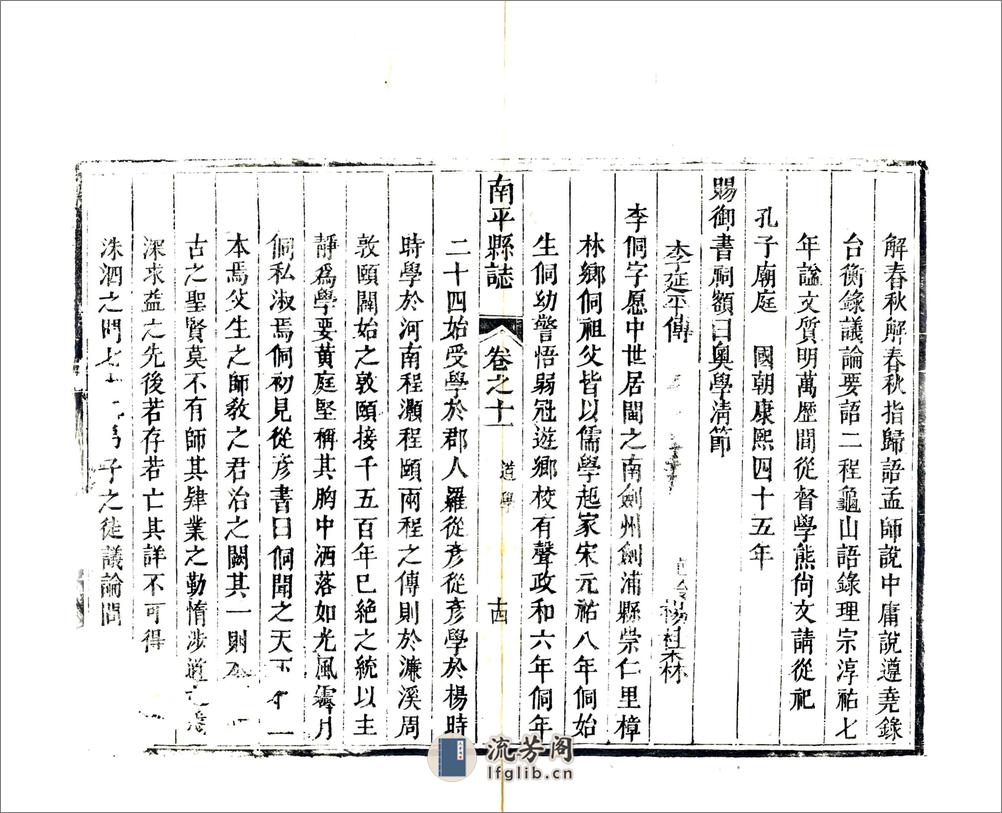 解春秋解春秋指歸語孟師說中庸說遵堯錄
台衡錄議論要語二程龜山語錄理宗淳祐七
年謚文質明萬歷間從督學熊尙文請從祀
孔子廟庭　國朝康熙四十五年
賜御書祠額曰奧學淸節
李延平傳　楊
李侗字愿中世居閩之南劍州劍浦縣崇仁里樟
林鄉侗祖父皆以儒學起家宋元祐八年侗始
生侗幼警悟弱冠遊鄉校有聲政和六年侗年
南平縣誌　卷之十一　道學　十四
二十四始受學於郡人羅從彥從彥學於楊時
時學於河南程灝程頤兩程之傳則於濂溪周
敦頤闢始之敦頤接千五百年已絶之統以主
靜爲學要黃庭堅稱其胸中洒落如光風霽月
侗私淑焉侗初見從彥書曰侗聞之天下
本焉父生之師敎之君治之闕其一則
古之聖賢莫不有師其肄業之勤惰涉道之
深求益之先後若存若亡其詳不可得
洙泗之門七　弟子之徒議論問
流芳阁
lfglib.cn